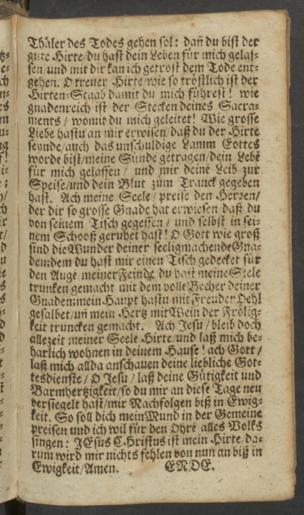 Thäler des Todes gehen sol: dañ du bist der
gute Hirte/du hast dein Leben für mich gelas-
sen/und mit dir kan ich getrost dem Tode ent-
gehen. O treuer Hirte/wie so tröstlich ist der
Hirten-Staab damit du mich führest! wie
gnadenreich ist der Stecken deines Sacra-
ments/womit du mich geleitet! Wie grosse
Liebe hastu an mir erwisen daß du der Hirte
seynde/auch das unschuldige Lamm Gottes
worde bist/meine Sünde getragen/dein Lebē
für mich gelassen/und mir deine Leib zur
Speise/und dein Blut zum Tranck gegeben
hast. Ach meine Seele/preise den Herzen/
der dir so grosse Gnade hat erwiesen daß du
von seinem Tisch gegessen/und selbst in sei-
nem Schooß geruhet hast! O Gott wie groß
sind die Wunder deiner seeligmachende Gna-
de in dem du hast mir einen Tisch gedecket für
den Auge meiner Feinde du hast meine Seele
truncken gemacht mit dem volle Becher deiner
Gnaden: mein Haupt hastu mit Freuden Oehl
gesalbet/uñ mein Hertz mit Wein der Frölig-
keit truncken gemacht. Ach Jesu/bleib doch
allezeit meiner Seele Hirte/und laß mich be-
harlich wohnen in deinem Hause! ach Gott/
laß mich allda anschauen deine liebliche Got-
tesdienste/O Jesu/laß deine Gütigkeit und
Barmhertzigkeit/so du mir an diese Tage neu
versiegelt hast/mir Nachfolgen biß in Ewig-
keit. So soll dich mein Mund in der Gemeine
preisen und ich wil für den Ohrē alles Volks
singen: JEsus Christus ist mein Hirte/da-
rum wird mir nichts fehlen von nun an biß in
Ewigkeit/Amen. ENDE.